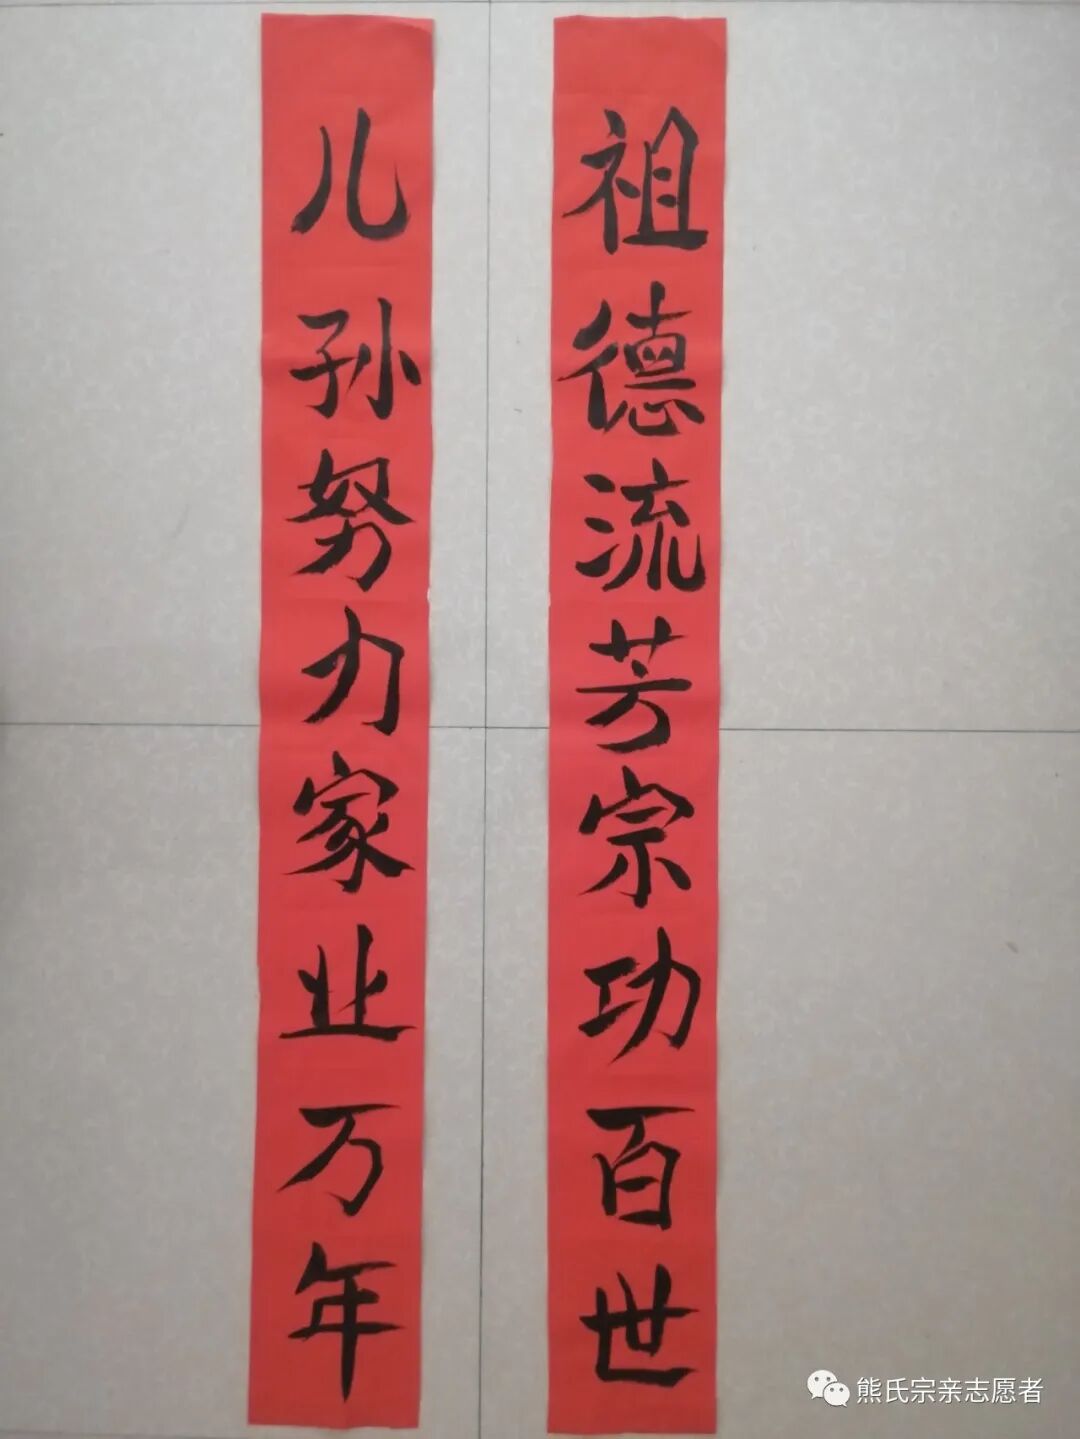 祖德流芳宗功百世
儿孙努力家业万年
熊氏宗亲志愿者